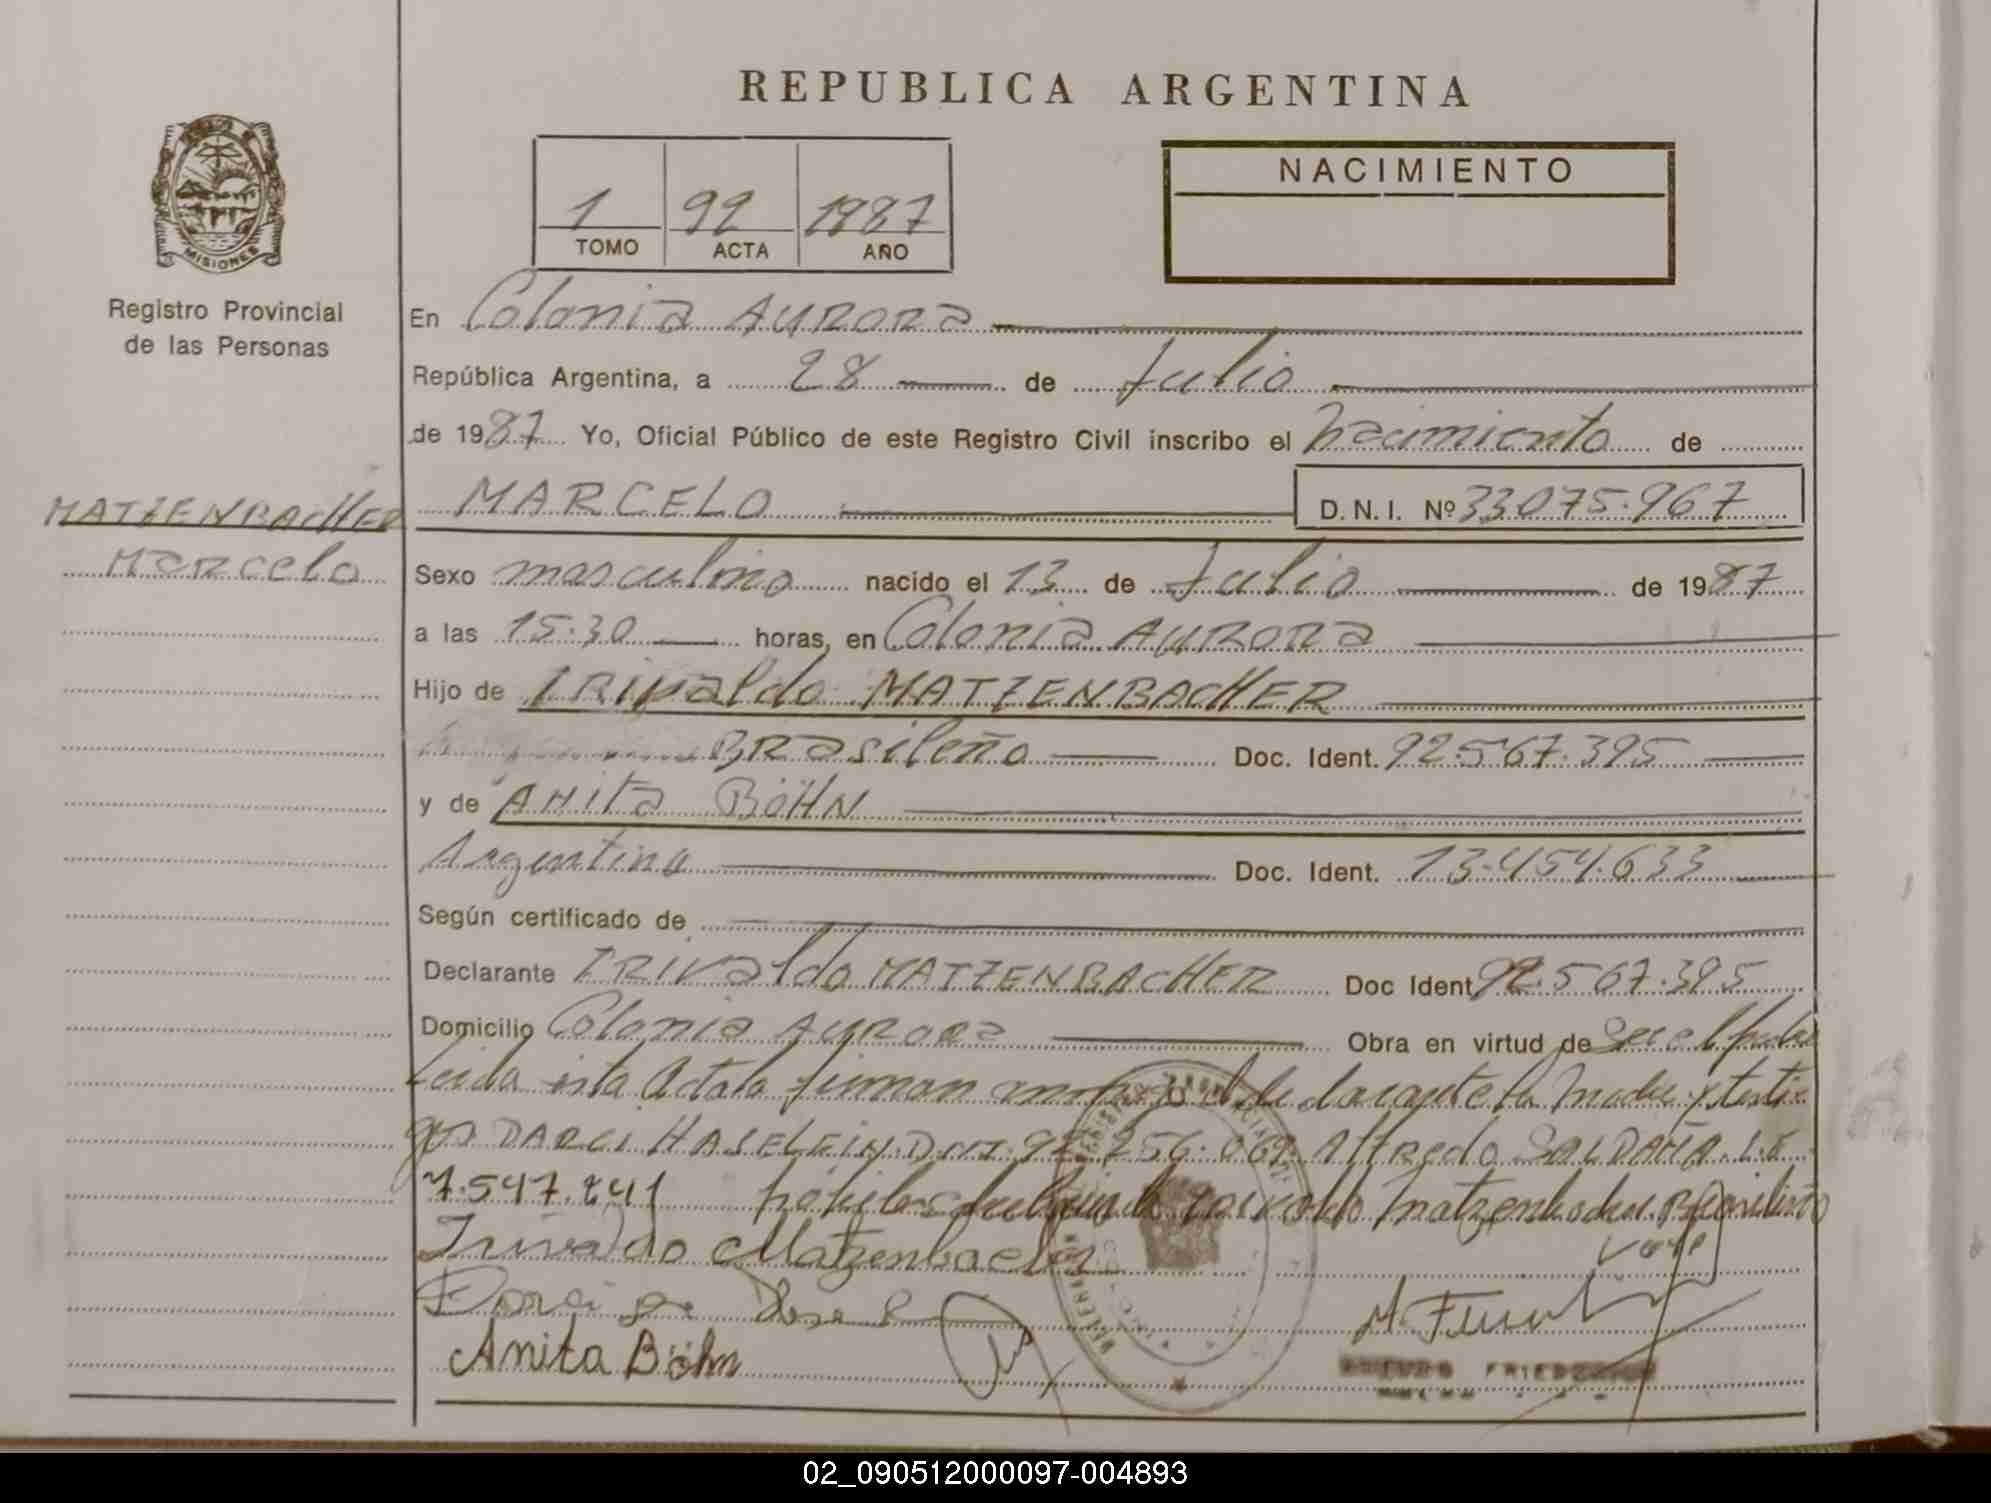 REPUBLICA ARGENTINA
MISIONES
Registro Provincial
de las Personas
1 92 1987
TOMO ACTA AÑO
NACIMIENTO
En Colonia Aurora
República Argentina, a 28 de Julio
de 1987 Yo, Oficial Público de este Registro Civil inscribo el nacimiento de
MATZENBACHER
Marcelo
MARCELO D.N.I. Nº 33075.967
Sexo masculino nacido el 13 de Julio de 1987
a las 15.30 horas, en Colonia Aurora
Hijo de IRivaldo MATZENBACHER
BRasileño Doc. Ident. 92.567.395
y de ANita BÖHN
Argentina Doc. Ident. 13.454.633
Según certificado de
Declarante IRIvaldo MATZENBACHER Doc Ident 92.567.395
Domicilio Colonia Aurora Obra en virtud de Ser el padre
Leida esta Acta la firman conmigo el declarante la Madre y testi-
gos DARCI HASELEIN D.N.I. 92.256.062 Alfredo SALDAÑA L.E.
7.547.241 Matzenbacher Brasileño
Vale
Irivaldo Matzenbacher
Anita Böhn
02_090512000097-004893